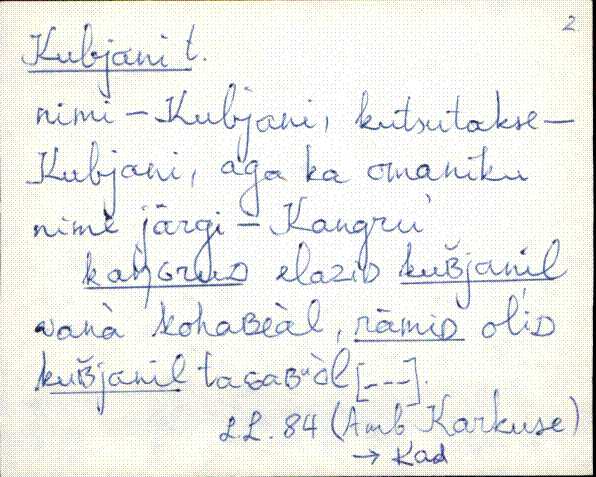 2
Kubjani t.
nimi – Kubjani, kutsutakse –
Kubjani, aga ka omaniku
nime järgi – Kangru
kaŋɢruᴅ elaziᴅ kuʙ̆janil
vanà kohaʙèàl, rāmiᴅ oliᴅ
kuʙ̆janil taɢaʙòl [---].
LL. 84 (Amb Karkuse)
→ Kad